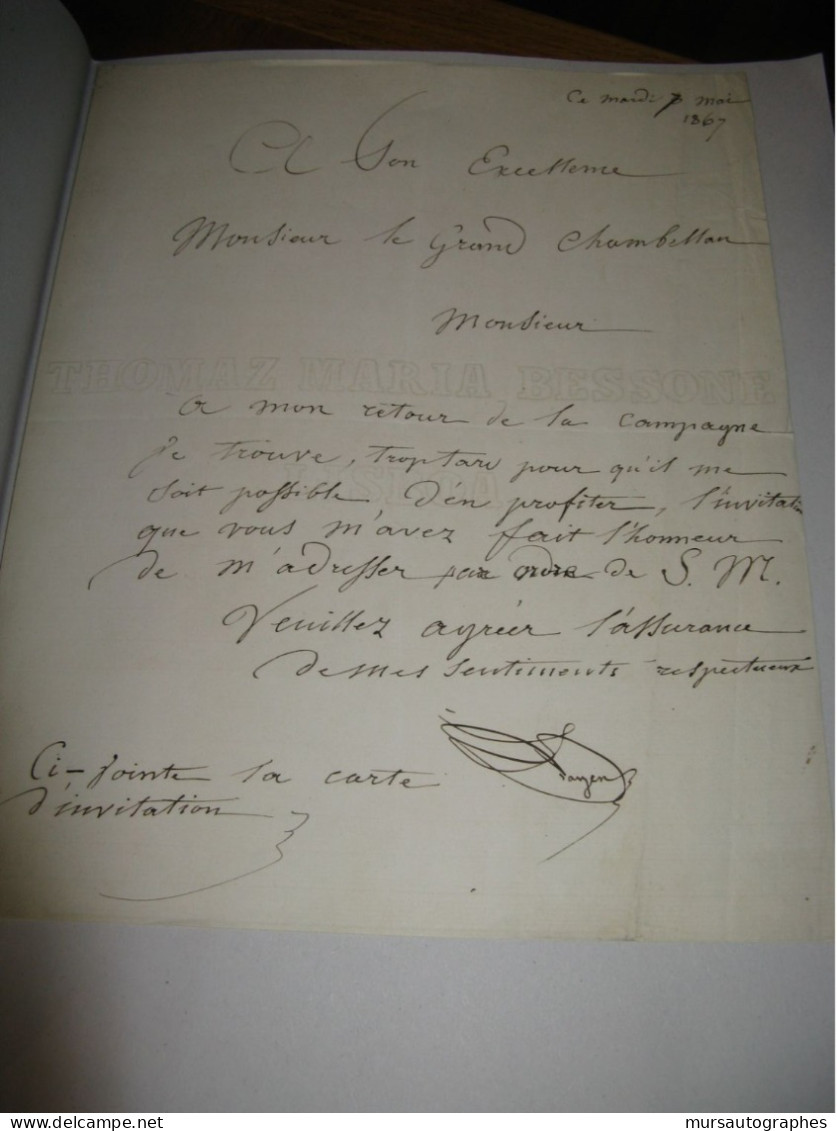 Ce mardi 7 mai
1867
A Son Excellence
Monsieur le Grand Chambellan
Monsieur
THOMAZ MARIA BESSONE
LISBOA
a mon retour de la campagne
je trouve, trop tard pour qu'il me
soit possible d'en profiter, l'invitation
que vous m'avez fait l'honneur
de m'adresser par ordre de S. M.
Veuillez agréer l'assurance
de mes sentiments respectueux
Payen
Ci-jointe la carte
d'invitation
mursautographes